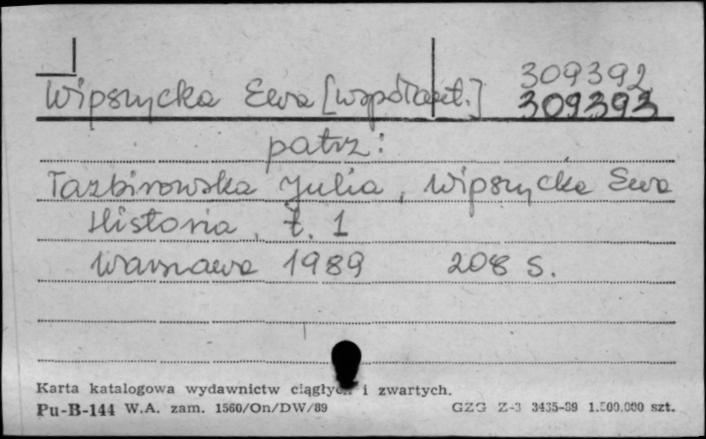 309392
Wipszycka Ewa [współaut.] 309393
patrz:
Tazbirowska Julia, Wipszycka Ewa
Historia, t. 1
Warszawa 1989 208 s.
Karta katalogowa wydawnictw ciągłych i zwartych.
Pu-B-144 W.A. zam. 1560/On/DW/89 GZG Z-3 3435-89 1.500.000 szt.